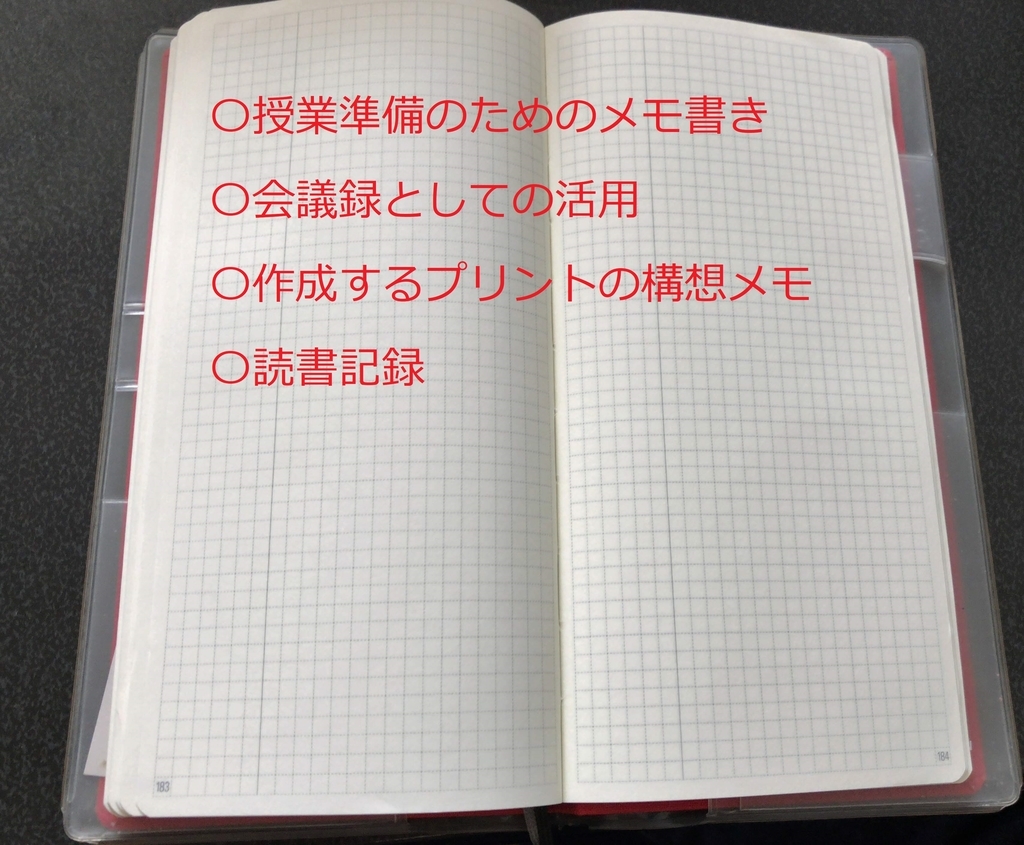 〇授業準備のためのメモ書き
〇会議録としての活用
〇作成するプリントの構想メモ
〇読書記録
183
184